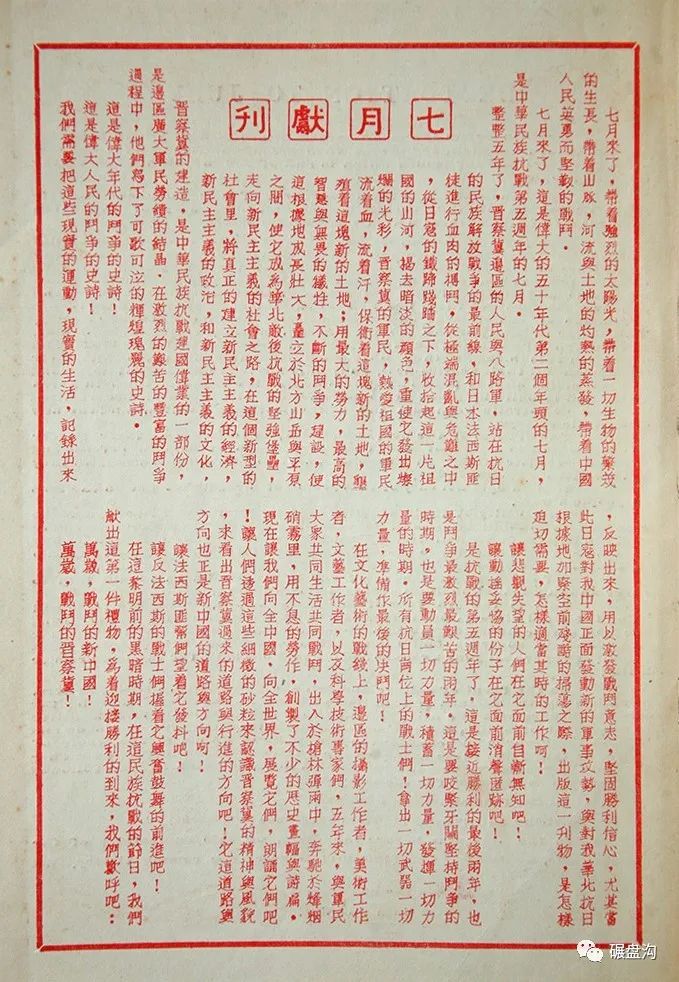 七月獻刊
七月來了,帶着強烈的太陽光,帶着一切生物的繁茂
的生長,帶着山脈,河流與土地的灼熱的蒸發,帶着中國
人民英勇而堅毅的戰鬥.
七月來了,這是偉大的五十年代第二個年頭的七月,
是中華民族抗戰第五週年的七月.
整整五年了,晉察冀邊區的人民與八路軍,站在抗日
的民族解放戰爭的最前線,和日本法西斯匪
徒進行血肉的搏鬥,從極端混亂與危難之中
,從日寇的鐵蹄踐踏之下,收拾起這一片祖
國的山河,揚去暗淡的顏色,重使它發出燦
爛的光彩,晉察冀的軍民,熱愛祖國的軍民
流着血,流着汗,保衛着這塊新的土地,墾
殖着這塊新的土地;用最大的勞力,最高的
智慧與無畏的犧牲,不斷的鬥爭,建設,使
這根據地成長壯大,矗立於北方山岳與平原
之間,使它成為華北敵後抗戰的堅強堡壘,
走向新民主主義的社會之路,在這個新型的
社會里,將真正的建立新民主主義的經濟,
新民主主義的政治,和新民主主義的文化,
晉察冀的建造,是中華民族抗戰建國偉業的一部份,
是邊區廣大軍民勞績的結晶.在激烈的艱苦的豐富的鬥爭
過程中,他們寫下了可歌可泣的輝煌瑰麗的史詩.
這是偉大年代的鬥爭的史詩!
這是偉大人民的鬥爭的史詩!
我們需要把這些現實的運動,現實的生活,記錄出來
,反映出來,用以激發戰鬥意志,堅固勝利信心,尤其當
此日寇對我中國正面發動新的軍事攻勢,與對我華北抗日
根據地加緊空前殘酷的掃蕩之際,出版這一刊物,是怎樣
迫切需要,怎樣適當其時的工作呵!
讓悲觀失望的人們在它面前自慚無知吧!
讓動搖妥協的份子在它面前消聲匿跡吧!
是抗戰的第五週年了.這是接近勝利的最後兩年,也
是鬥爭最激烈最艱苦的兩年.這是要咬緊牙關堅持鬥爭的
時期,也是要動員一切力量,積蓄一切力量,發揮一切力
量的時期.所有抗日崗位上的戰士們!拿出一切武器一切
力量,準備作最後的決鬥吧!
在文化藝術的戰綫上,邊區的攝影工作者,美術工作
者,文藝工作者,以及科學技術專家們,五年來,與軍民
大眾共同生活共同戰鬥,出入於槍林彈雨中,奔馳於烽烟
硝霧里,用不息的勞作,創製了不少的歷史畫幅與詩扁.
現在讓我們向全中國,向全世界,展覽它們,朗誦它們吧
!讓人們透過這些細微的砂粒來認識晉察冀的精神與風貌
,來看出晉察冀過來的道路與行進的方向吧!它這道路與
方向也正是新中國的道路與方向呵!
讓法西斯匪幫們望着它發抖吧!
讓反法西斯的戰士們握着它興奮鼓舞的前進吧!
在這黎明前的黑暗時期,在這民族抗戰的節日,我們
獻出這第一件禮物,為着迎接勝利的到來,我們歡呼吧:
萬歲,戰鬥的新中國!
萬歲,戰鬥的晉察冀!
碾盘沟